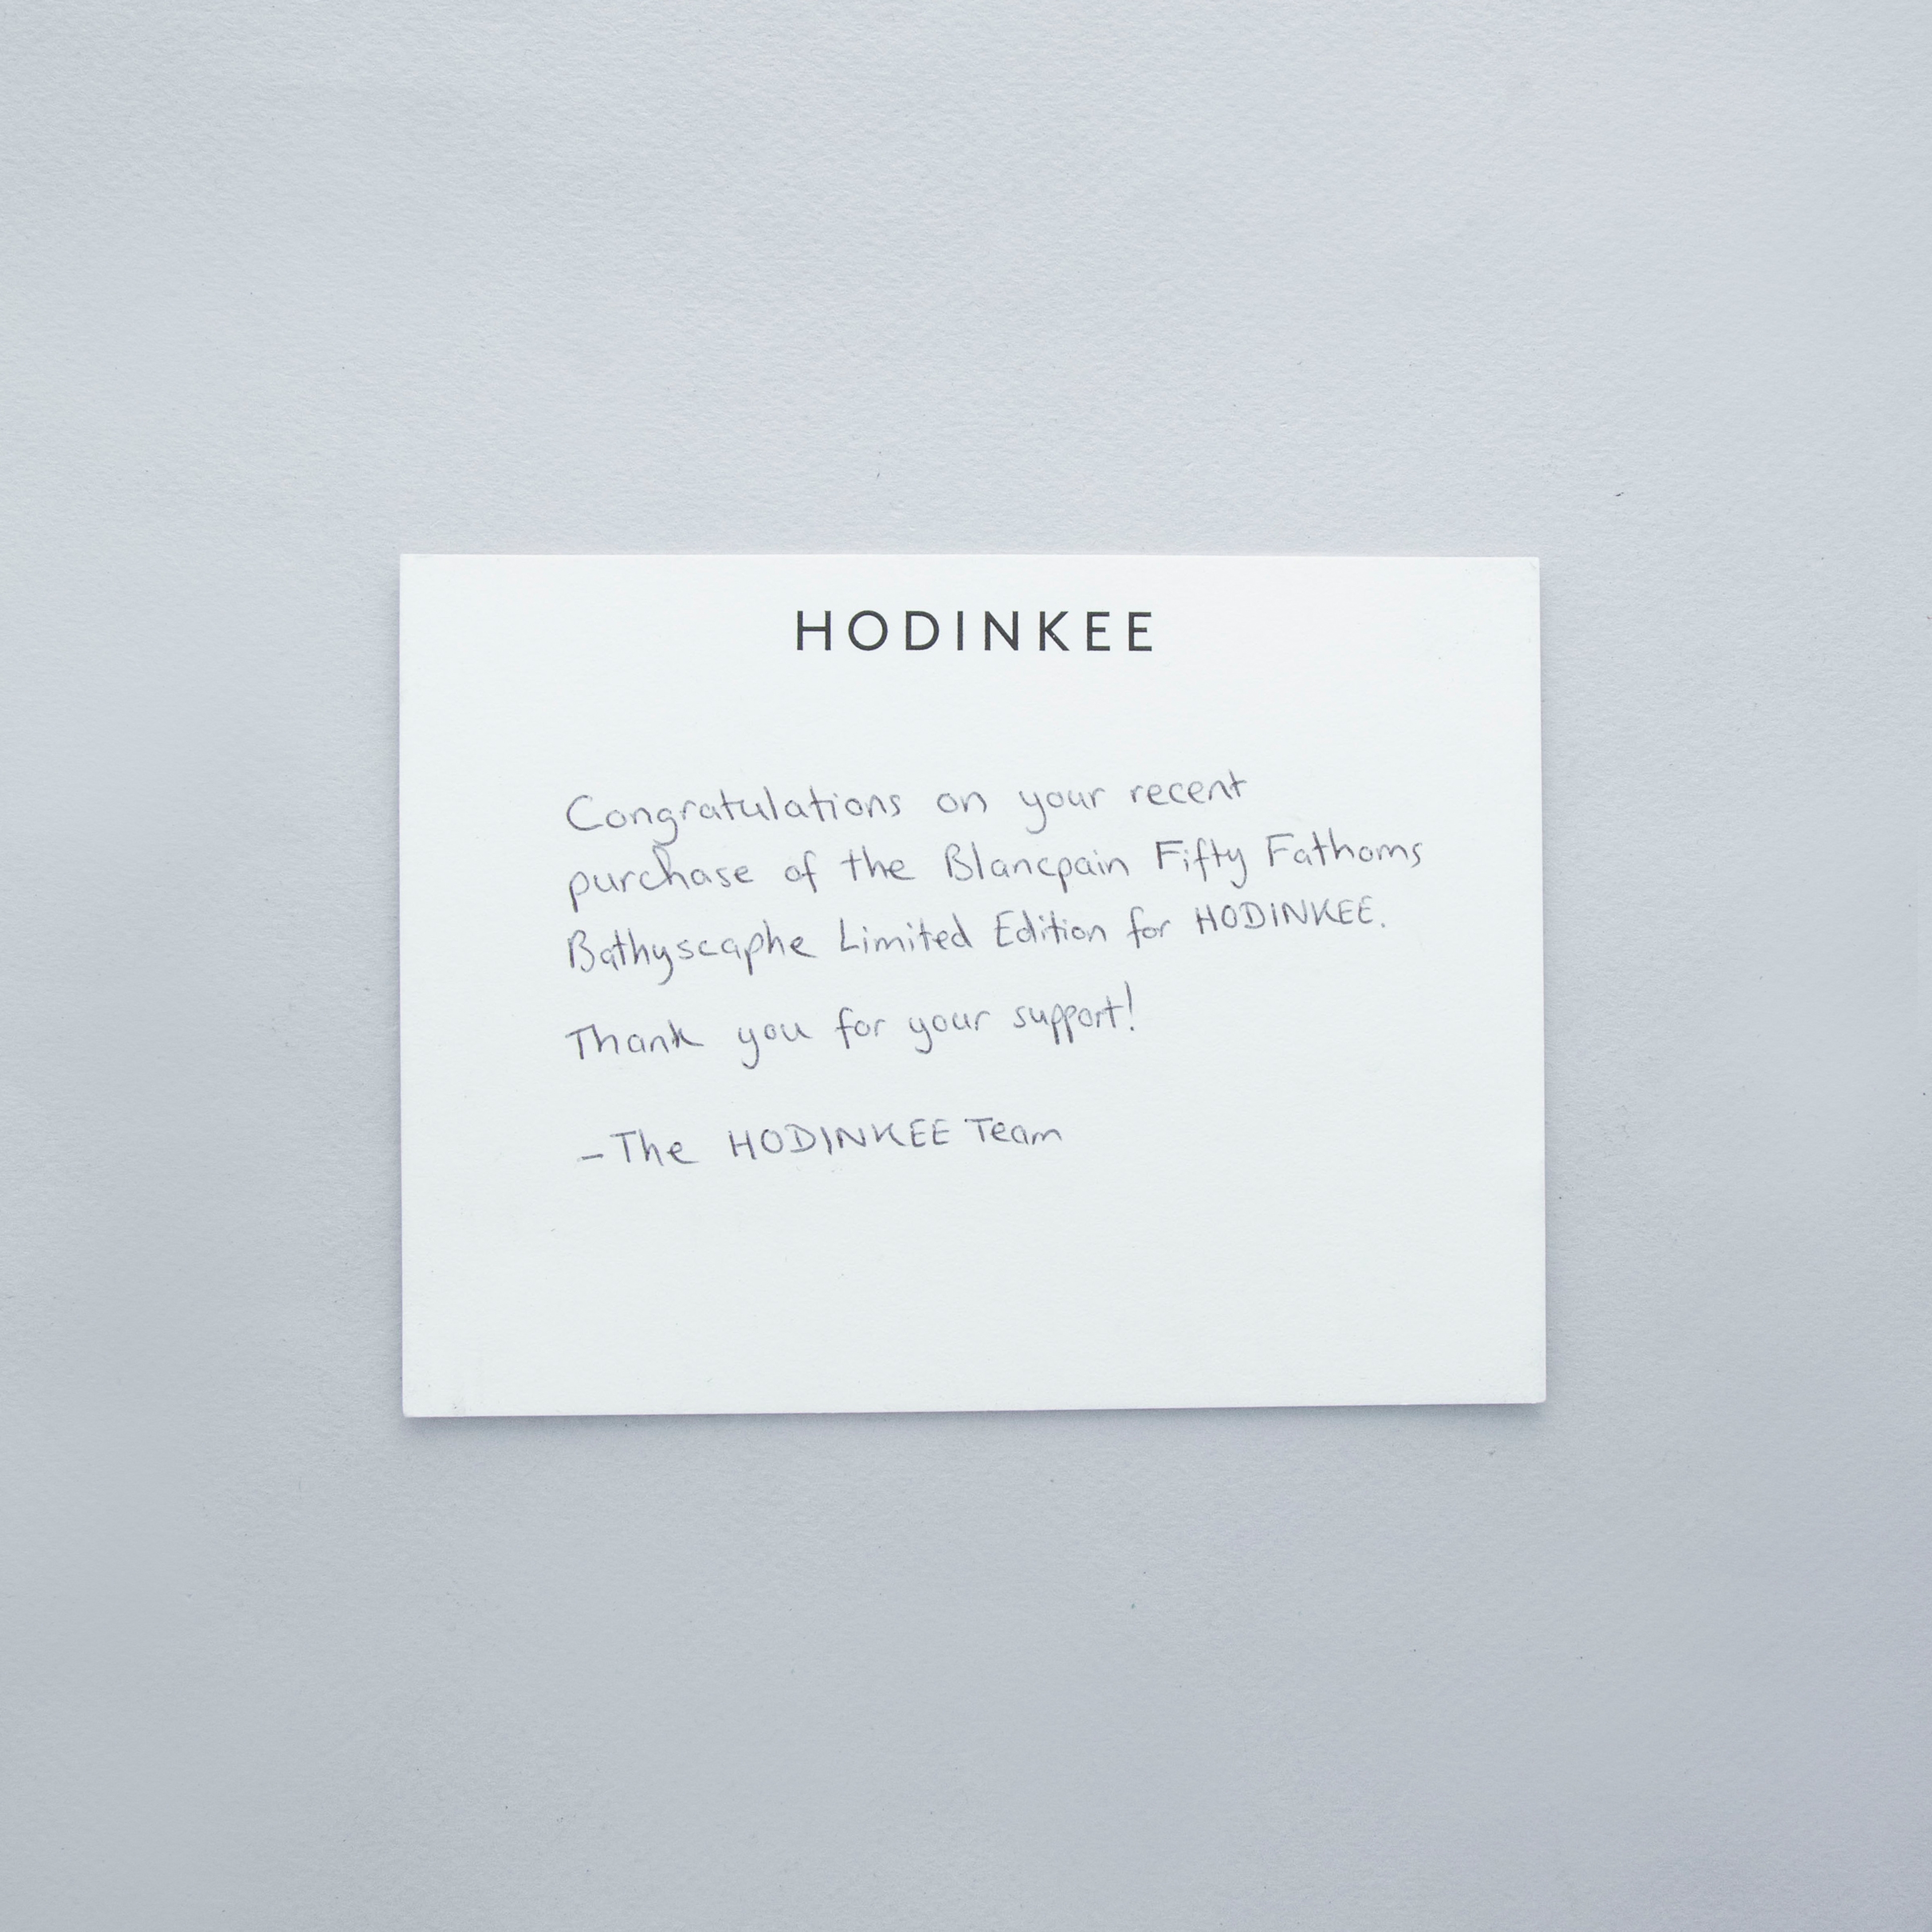 HODINKEE
Congratulations on your recent
purchase of the Blancpain Fifty Fathoms
Bathyscaphe Limited Edition for HODINKEE.
Thank you for your support!
-The HODINKEE Team